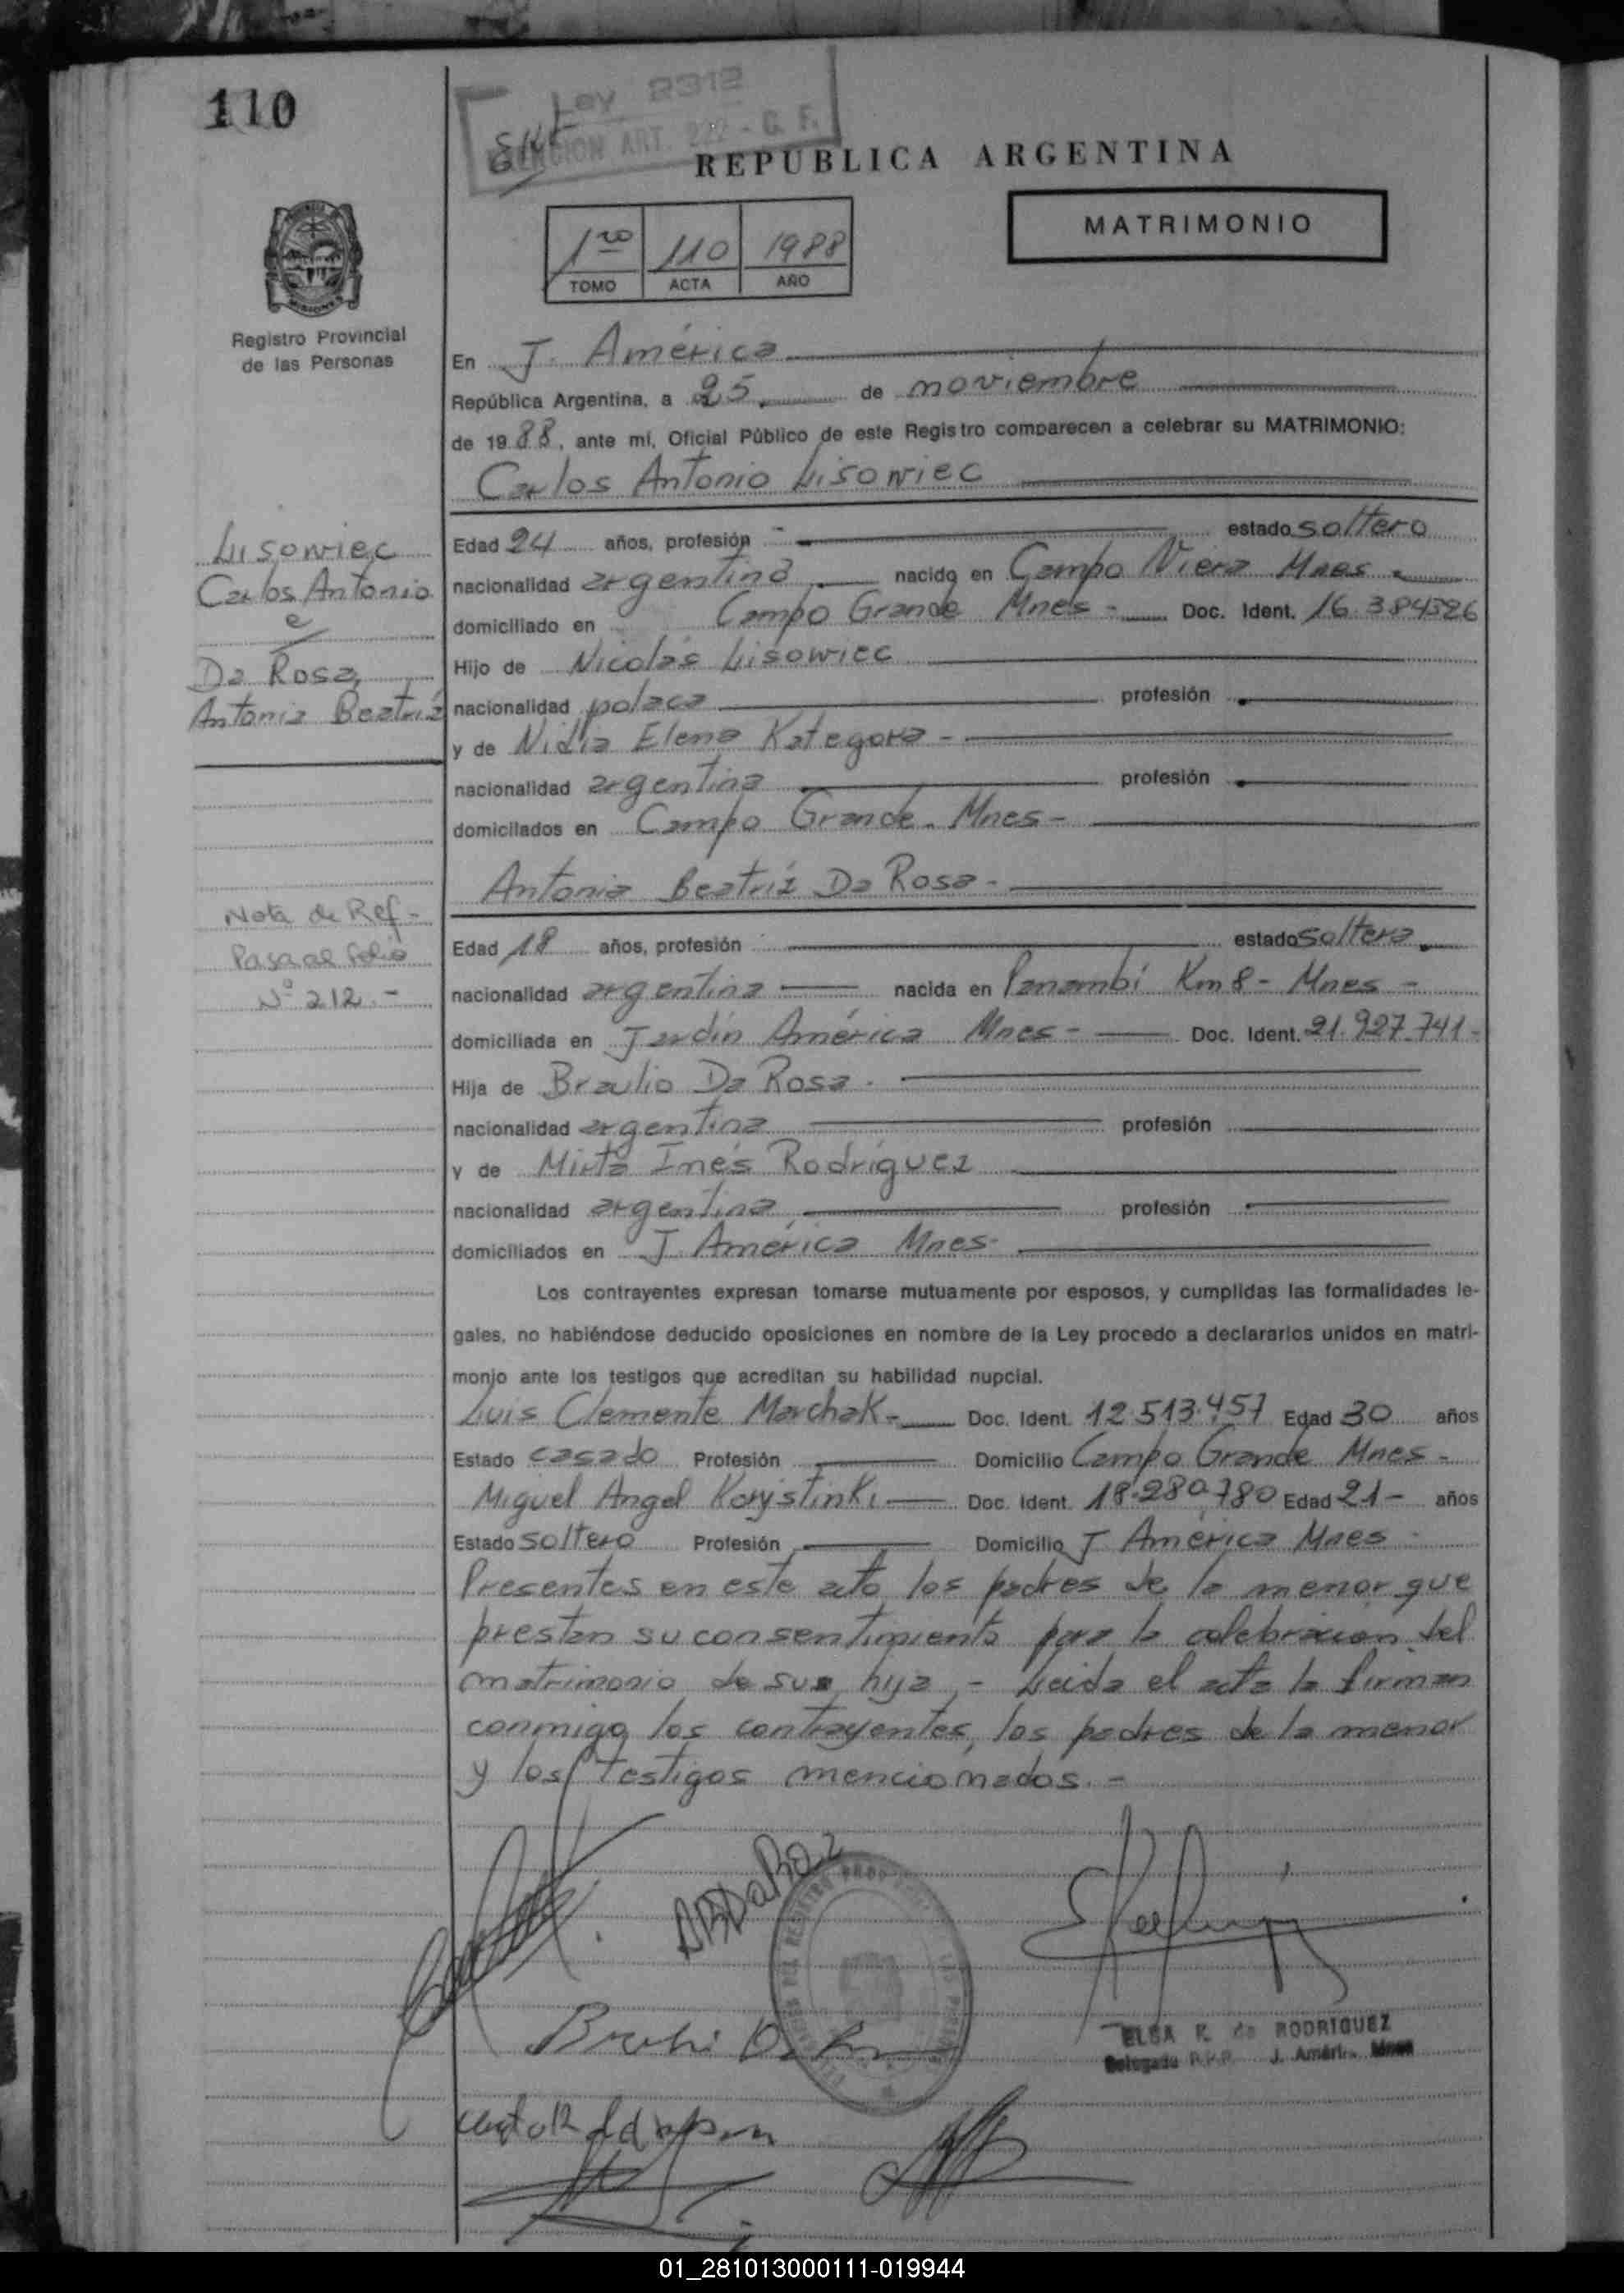 110
Ley 2312
EXENCION ART. 222 - C. F.
REPUBLICA ARGENTINA
MATRIMONIO
1ro 110 1988
TOMO ACTA AÑO
MISIONES
Registro Provincial
de las Personas
En J. América
República Argentina, a 25 de noviembre
de 1988, ante mí, Oficial Público de este Registro comparecen a celebrar su MATRIMONIO:
Carlos Antonio Lisowiec
Lisowiec
Carlos Antonio
e
Da Rosa,
Antonia Beatriz
Edad 24 años, profesión - estado soltero
nacionalidad argentina nacido en Campo Viera Mnes -
domiciliado en Campo Grande Mnes - Doc. Ident. 16.384326
Hijo de Nicolás Lisowiec
nacionalidad polaca profesión
y de Nidia Elena Kategora -
nacionalidad argentina profesión
domicilados en Campo Grande - Mnes -
Antonia Beatríz Da Rosa -
Nota de Ref -
Pasa al folio
Nº 212 . -
Edad 18 años, profesión estado soltera
nacionalidad argentina nacida en Panambí Km 8 - Mnes -
domiciliada en Jardín América Mnes - Doc. Ident. 21.927.741 -
Hija de Braulio Da Rosa .
nacionalidad argentina profesión
y de Mirta Inés Rodríguez
nacionalidad argentina profesión
domiciliados en J. América Mnes -
Los contrayentes expresan tomarse mutuamente por esposos, y cumplidas las formalidades le-
gales, no habiéndose deducido oposiciones en nombre de la Ley procedo a declararlos unidos en matri-
monio ante los testigos que acreditan su habilidad nupcial.
Luis Clemente Marchak - Doc. Ident. 12.513.457 Edad 30 años
Estado casado Profesión Domicilio Campo Grande Mnes -
Miguel Angel Korystinki Doc. Ident. 18.280.780 Edad 21 - años
Estado soltero Profesión Domicilio J América Mnes -
Presentes en este acto los padres de la menor que
prestan su consentimiento para la celebración del
matrimonio de su hija . - Leida el acta la firman
conmigo los contrayentes, los padres de la menor
y los testigos mencionados. -
ABDaRoz
ELSA K. de RODRIGUEZ
Delegada R.P.P. J. América Mnes
01_281013000111-019944